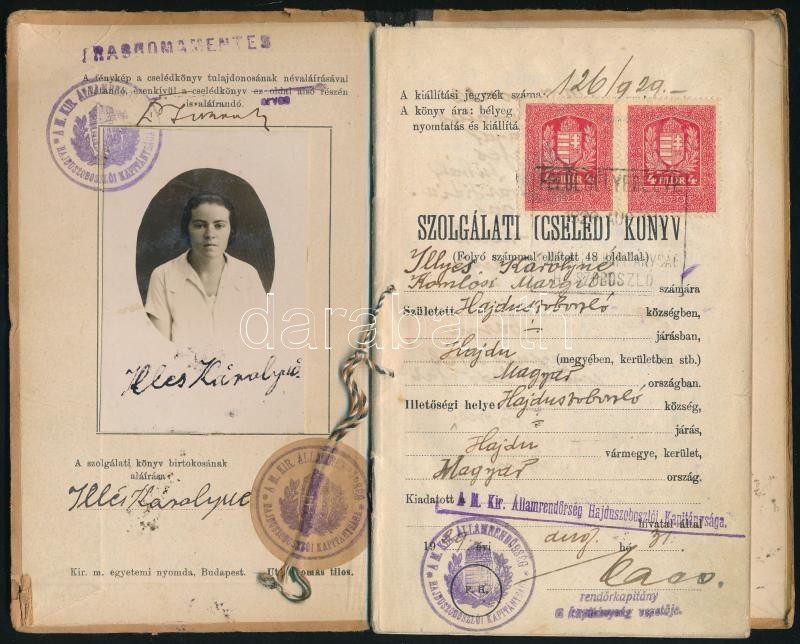 TRASHOMAMENTES
A fénykép a cselédkönyv tulajdonosának névaláírásával
ellátandó, ezenkívül a cselédkönyv ez oldal alsó részén
is aláírandó. orvos
A M. KIR. ÁLLAMRENDŐRSÉG HAJDUSZOBOSZLÓI KAPITÁNYSÁGA
Illés Károlyné
A szolgálati könyv birtokosának
aláírása:
Illés Károlyné
A M. KIR. ÁLLAMRENDŐRSÉG HAJDUSZOBOSZLÓI KAPITÁNYSÁGA
Kir. m. egyetemi nyomda, Budapest. Utánnyomás tilos.
A kiállítási jegyzék száma: 126/929.-
A könyv ára: bélyeg
nyomtatás és kiállítá
4 FILLÉR 4
4 FILLÉR 4
1920
SZOLGÁLATI (CSELÉD) KÖNYV
(Folyó számmal ellátott 48 oldallal.)
Illyés Károlyné
Komlósi Margit számára
Született Hajduszoboszló községben,
járásban,
Hajdu (megyében, kerületben stb.)
Magyar országban.
Illetőségi helye Hajduszoboszló község,
járás,
Hajdu vármegye, kerület,
Magyar ország.
Kiadatott A M. Kir. Államrendőrség Hajduszoboszlói Kapitánysága.
hivatal által
19 évi aug. hó 31.
A M. KIR. ÁLLAMRENDŐRSÉG HAJDUSZOBOSZLÓI KAPITÁNYSÁGA
P. H.
rendőrkapitány
a kapitányság vezetője.
darabanth